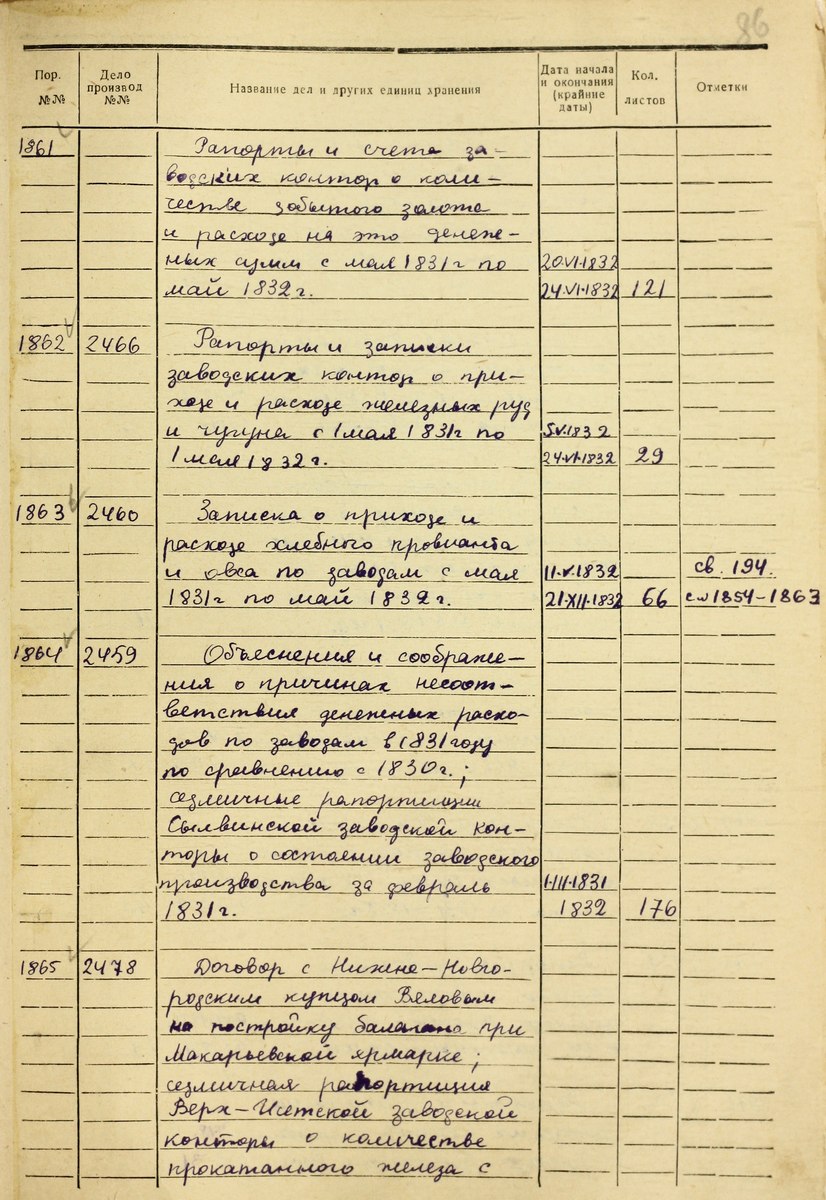 86
Пор. №№
Дело производ №№
Название дел и других единиц хранения
Дата начала и окончания (крайние даты)
Кол. листов
Отметки
1861 Рапорты и счета за-
водских контор о коли-
честве добытого золота
и расходе на это денеж-
ных сумм с мая 1831 г по 20.VI.1832
май 1832 г. 24.VI.1832 121
1862 2466 Рапорты и записки
заводских контор о при-
ходе и расходе железных руд
и чугуна с 1 мая 1831 г по 5.V.1832
1 мая 1832 г. 24.VI.1832 29
1863 2460 Записка о приходе и
расходе хлебного провианта
и овса по заводам с мая 11.V.1832 св. 194.
1831 г по май 1832 г. 21.XII.1832 66 1854-1863
1864 2459 Объяснения и соображе-
ния о причинах несоот-
ветствия денежных расхо-
дов по заводам в 1831 году
по сравнению с 1830 г.;
седмичные рапортиции
Сылвинской заводской кон-
торы о состоянии заводского
производства за февраль 1.III.1831
1831 г. 1832 176
1865 2478 Договор с Нижне-Новго-
родским купцом Вяловым
на постройку балагана при
Макарьевской ярмарке;
седмичная рапортиция
Верх-Исетской заводской
конторы о количестве
прокатанного железа с